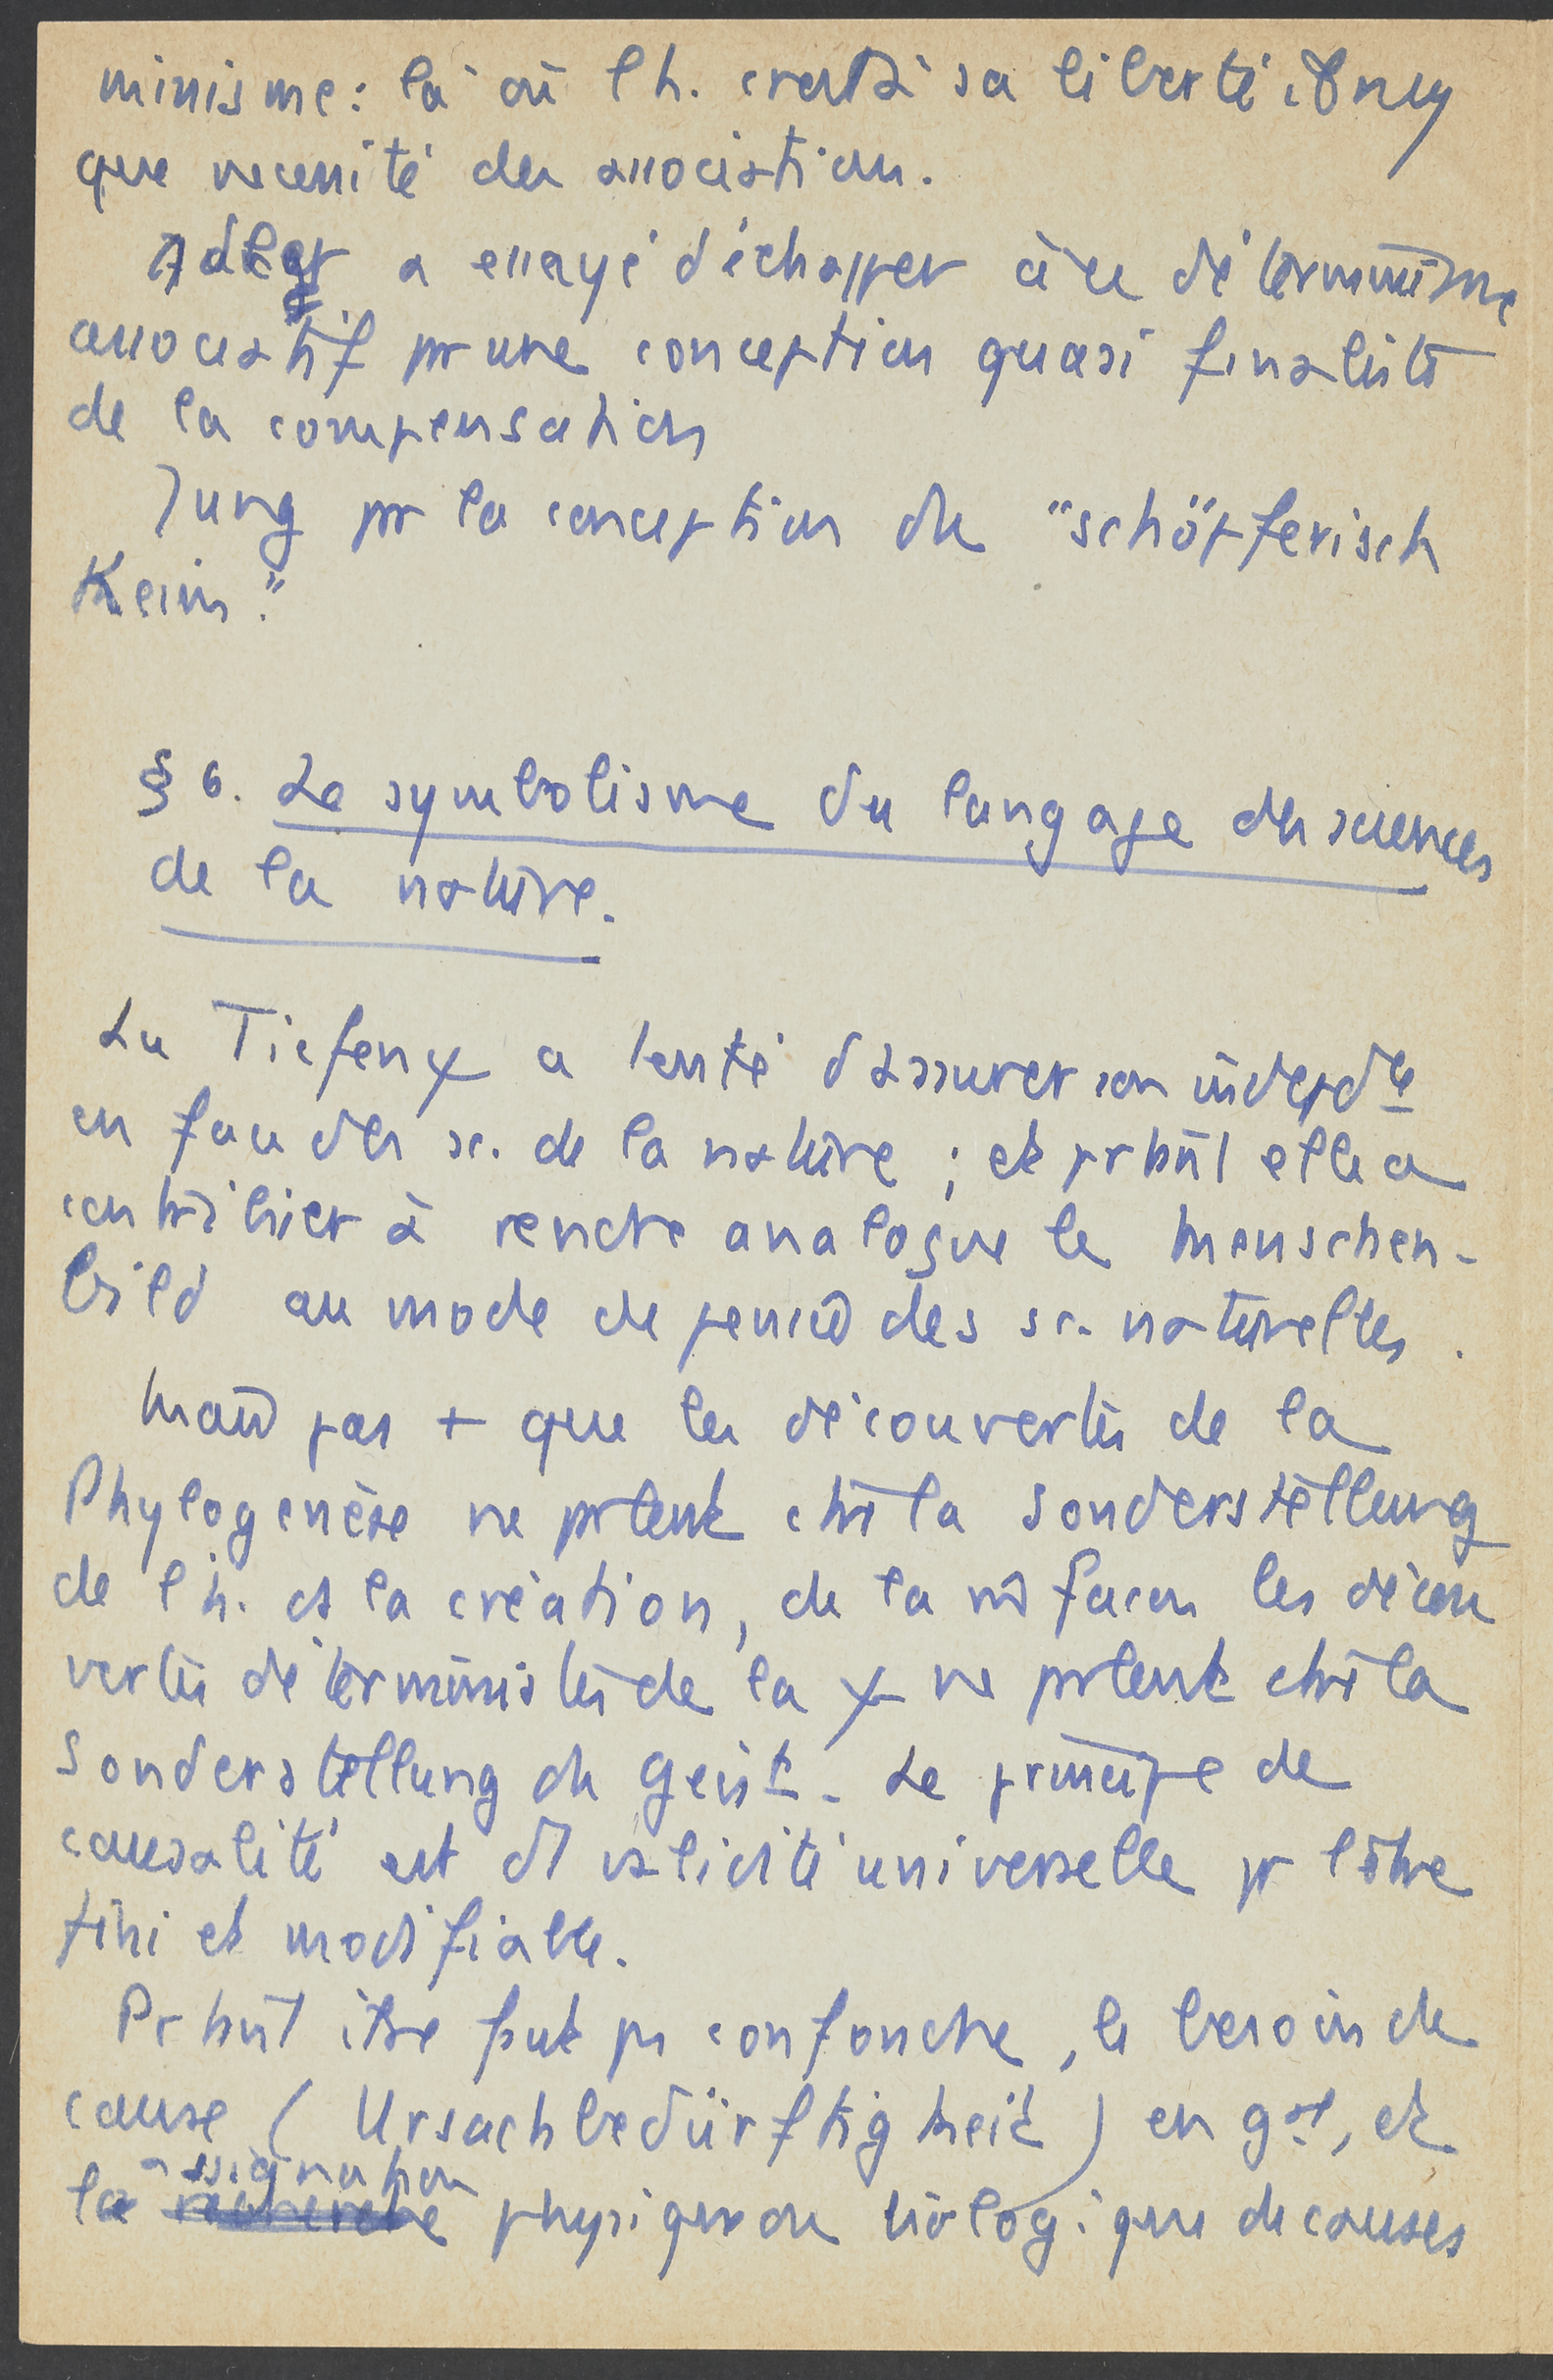 minisme: là où l h. croit à sa liberté, il n'y
que necessité des associations.
Adler a essayé d'échapper à ce déterminisme
associatif pr une conception quasi finaliste
de la compensation
Jung pr la conception du "schöpferisch
Keim."
§ 6. Le symbolisme du langage des sciences
de la nature.
La Tiefenψ a tenté d'assurer son indepdce
en face des sc. de la nature ; et prtant elle a
contribuer à rendre analogue le Menschen-
bild au mode de pensée des sc. naturelles.
Mais pas + que les découvertes de la
Phylogenèse ne prlent ctre la Sonderstellung
de l h. ds la création, de la m̂ facon les décou
vertes déterministes de la ψ ne prlent ctre la
Sonderstellung du Geist. Le principe de
causalité est d validité universelle pr l'être
fini et modifiable.
Prtant il ne faut pas confondre, le besoin de
cause (Ursachbedürftigkeit) en gal, et
la assignation physique ou biologique de causes